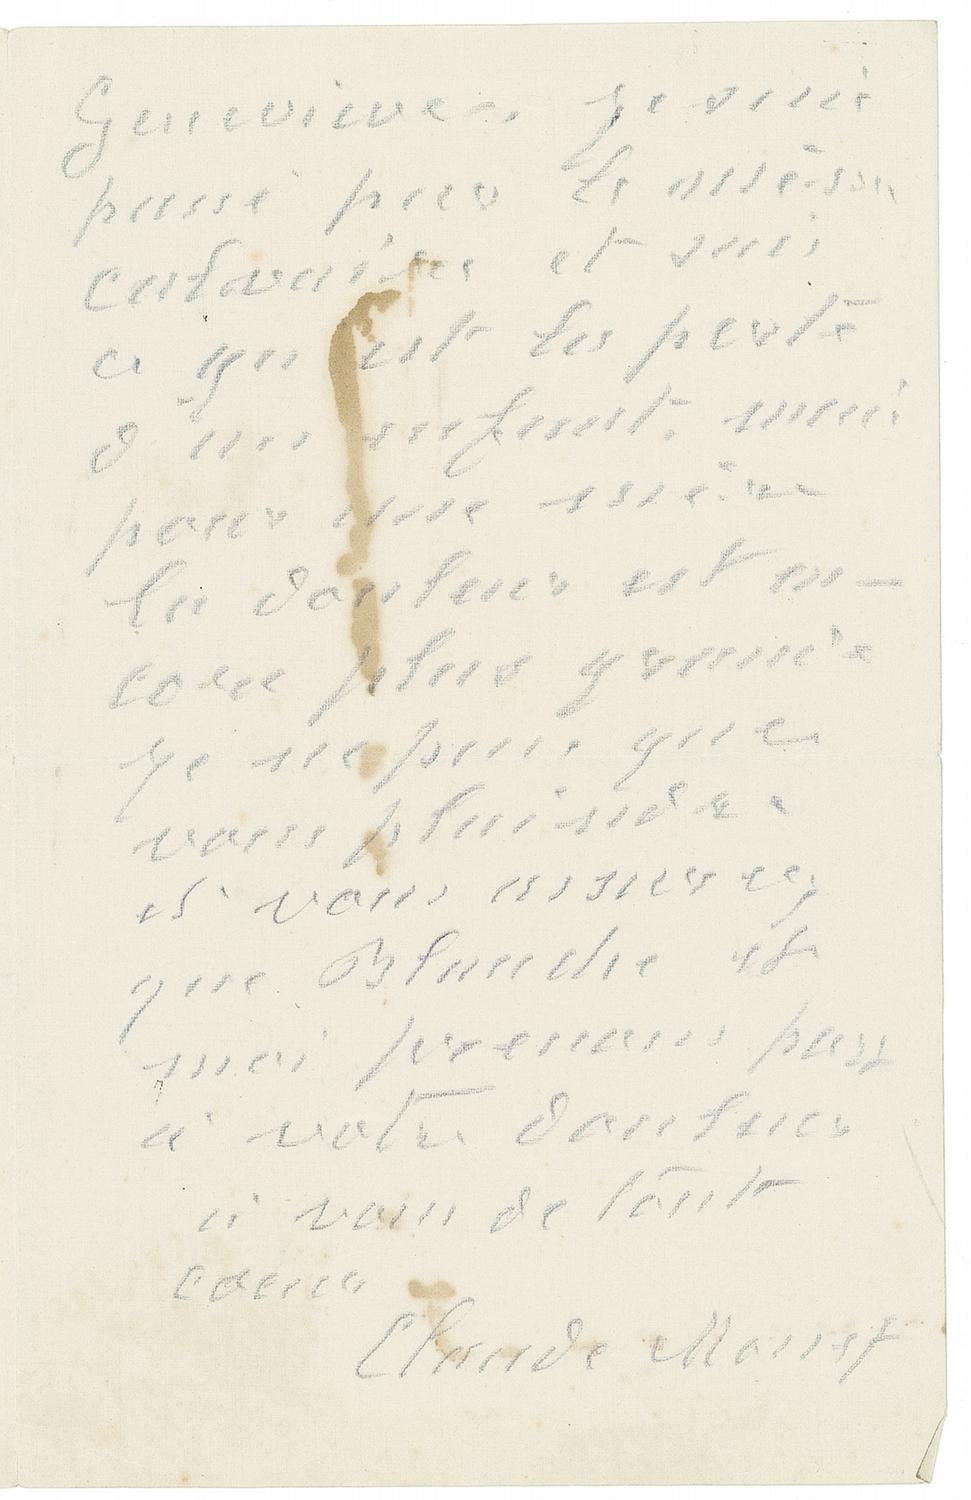 Genevieve. Je suis
passé par le même
calvaire et sais
ce qu'est la perte
d'un enfant. mais
pour une mère
la douleur est en-
core plus grande
je ne puis que
vous plaindre
et vous assurez
que Blanche et
moi prenons part
à votre douleur
à vous de tout
coeur
Claude Monet